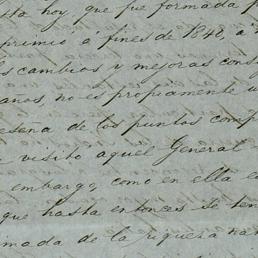 sta hoy, que fue formada p
primio á fines de 1848, á
s cambios y mejoras cons
años, no es propiamente u
eseña de los puntos comp
visitó aquel General
embargo, como en ella e
que hasta entonces se ten
mada de la riqueza na